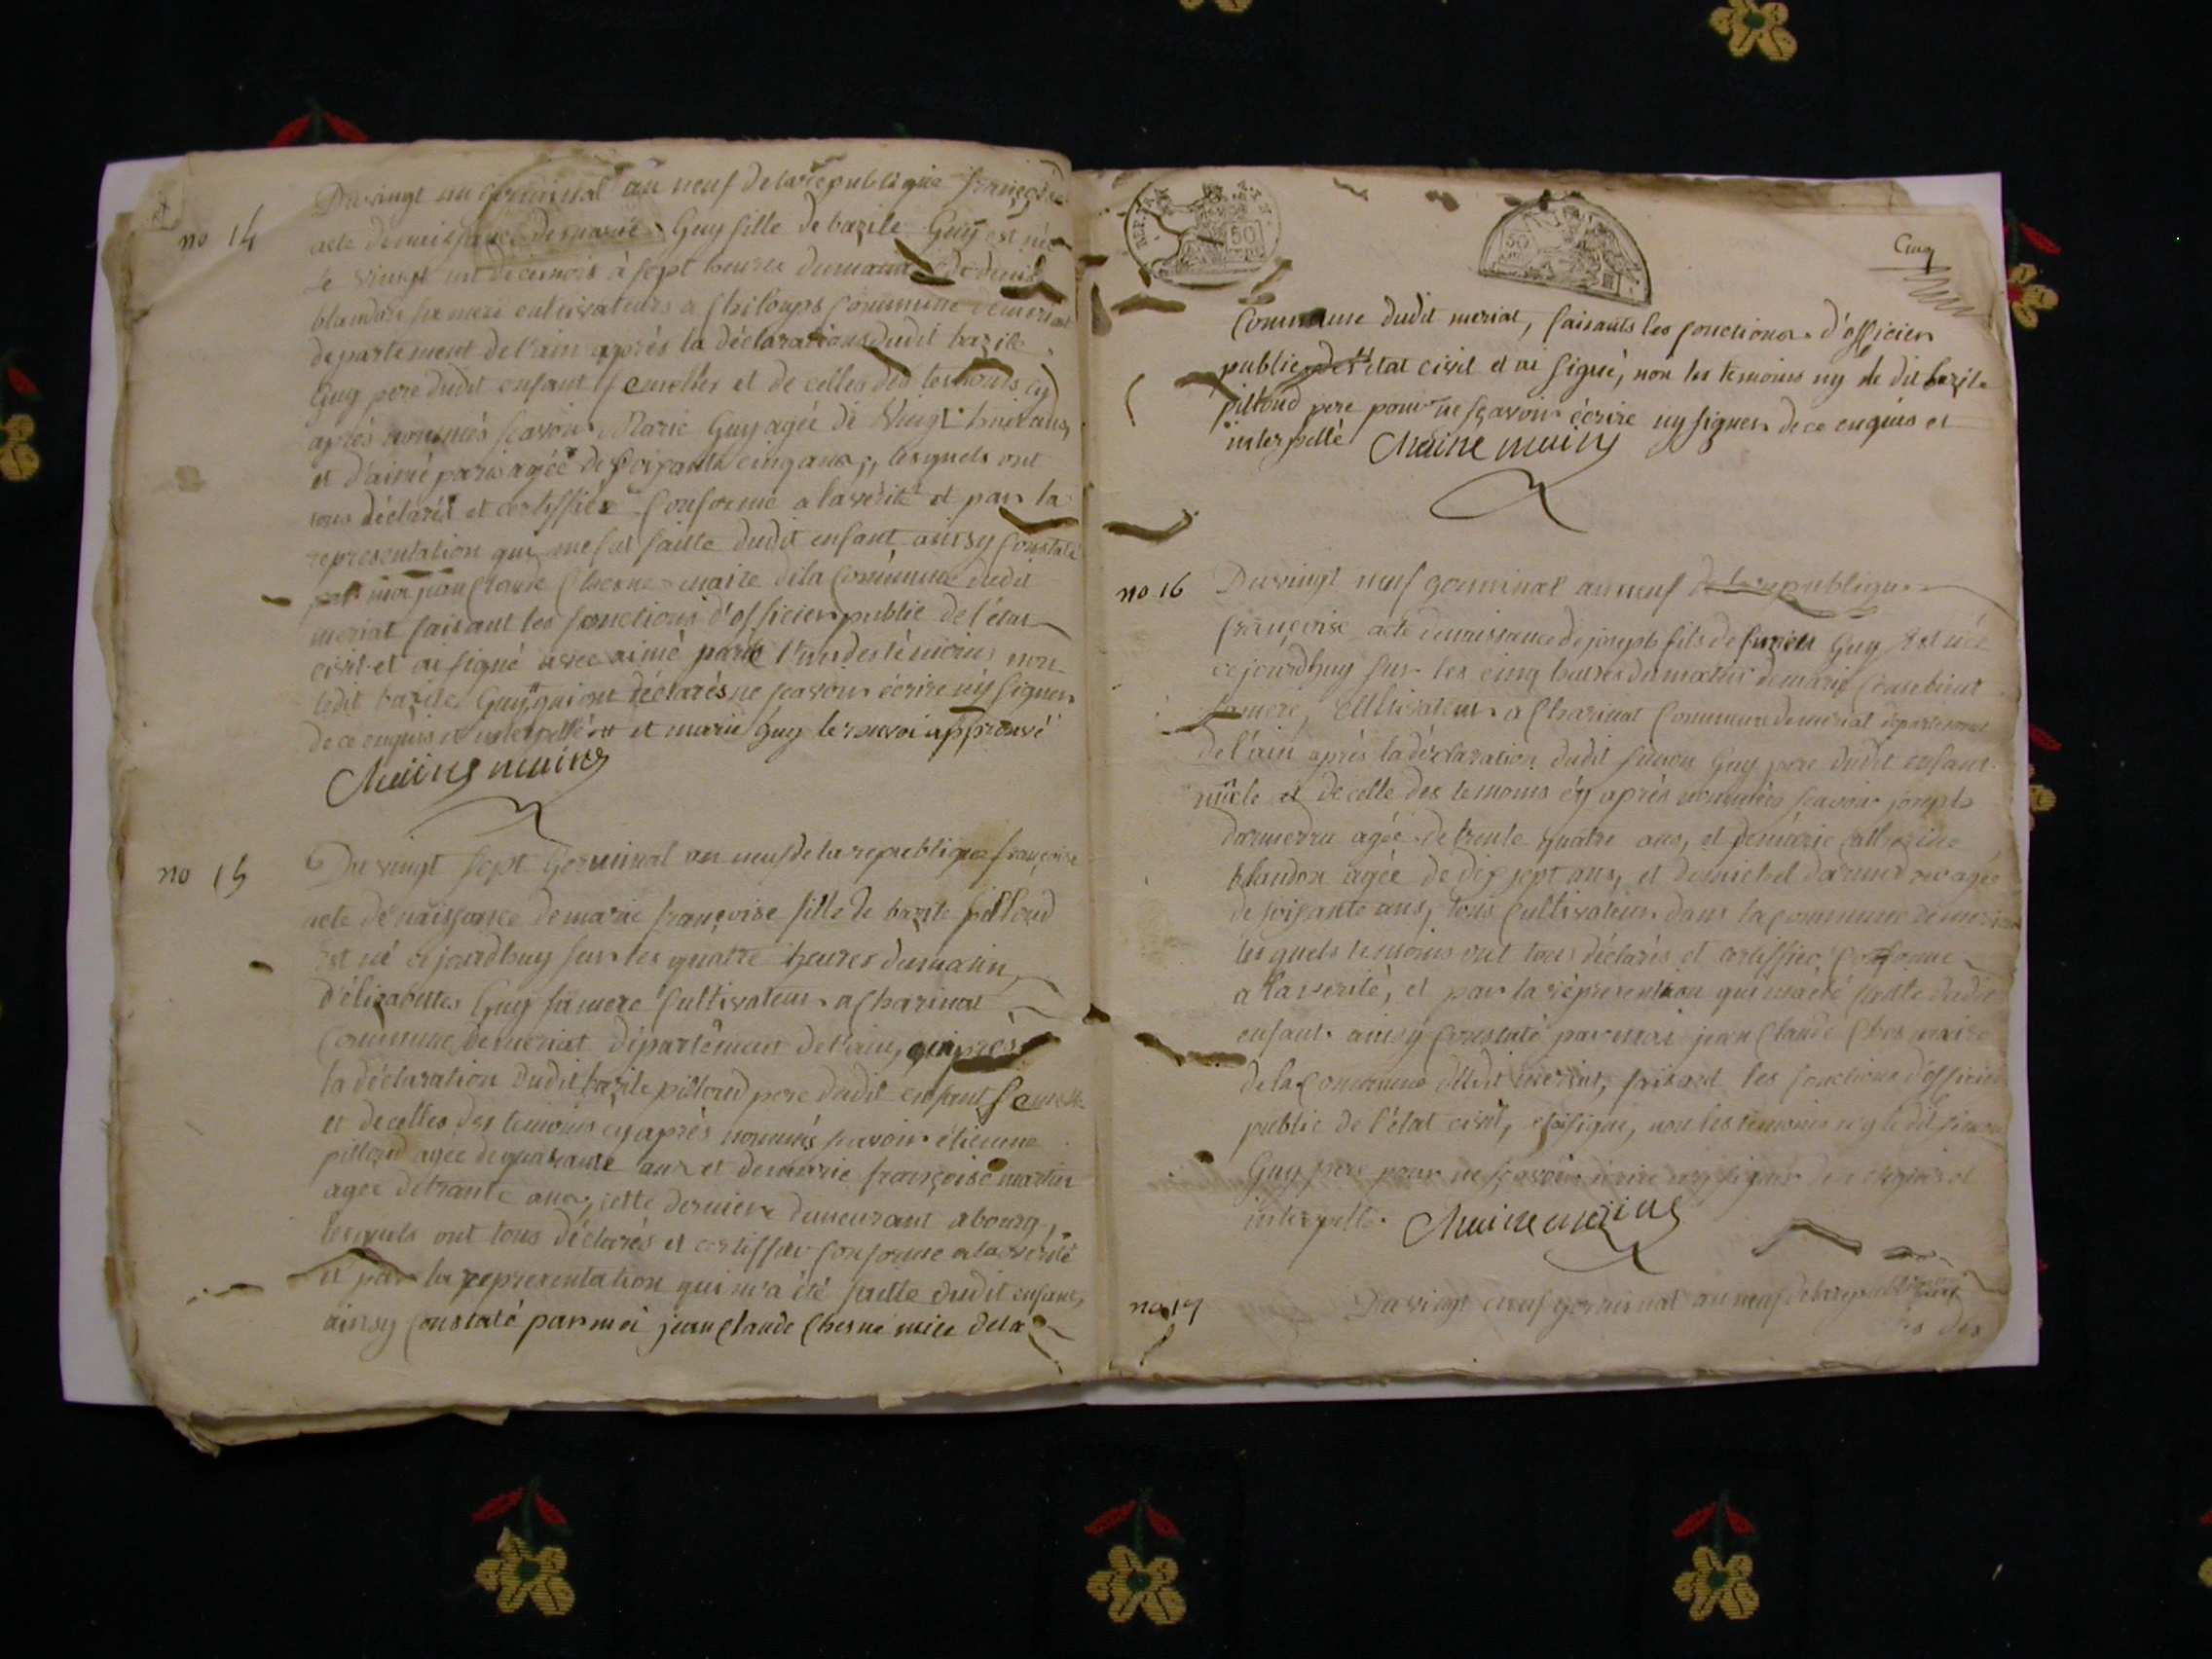 no 14
Du vingt un germinal an neuf de la republique françoise
acte de naissance de marie Guy fille de bazile Guy est née
le vingt un du mois à sept heures du matin de
blandon sa mere cultivateurs a Chiloups Commune de meriat
departement de l'ain après la déclaration dudit bazile
Guy pere dudit enfant femelle et de celles des temoins cy
après nommés scavoir Marie Guy agée de Vingt huit ans
et d'aimé paris agée de soixante cinq ans, lesquels ont
tous déclarés et certiffiée Conforme a la vérité et par la
representation qui me fut faitte dudit enfant ainsy Constaté
par moi jean Claude Chesne maire de la Commune dudit
meriat faisant les fonctions d'officier public de l'état
civil et ai signé avec aimé paris l'un des témoins non
ledit bazile Guy qui ont déclarés ne scavoir écrire ny signer
de ce enquis et interpellé et marie Guy le renvoi approuvé
no 15
Du vingt sept Germinal an neuf de la republique françoise
acte de naissance de marie françoise fille de bazile pilloud
est né ce jourdhuy sur les quatre heures du matin
d'élizabettes Guy sa mere Cultivateur a Charinat
Commune de meriat département de l'ain, après
la déclaration dudit bazile pilloud pere dudit enfant femelle
et de celles des temoins cy après nommés scavoir étienne
pilloud agée de quarante ans et de marie françoise martin
agée de trante ans, cette derniere demeurant abourg,
lesquels ont tous déclarés et certiffiée conforme a la vérité
et par la representation qui m'a été faitte dudit enfant,
ainsy Constaté par moi jean Claude Chesne mire de la
Cinq
Commune dudit meriat, faisants les fonctions d'officier
public de l'état civil et ai signé, non les temoins ny le dit bazile
pilloud pere pour ne sçavoir écrire ny signer de ce enquis et
interpellé
no 16
Du vingt neuf germinal an neuf de la republique
françoise acte de naissance de joseph fils de simon Guy est née
ce jourdhuy sur les cinq heures du matin de marie
sa mere, Cultivateur a Charinat Commune de meriat departement
de l'ain après la déclaration dudit simon Guy pere dudit enfant
mâle et de celle des temoins cy après nommées scavoir joseph
agée de trente quatre ans, et de marie catherine
blandon agée de dix sept ans, et de michel agée
de soixante ans, tous Cultivateur dans la commune de meriat
lesquels temoins ont tous déclarés et certiffiée Conforme
a la verité, et par la réprésentation qui m'a été faitte dudit
enfant ainsy Constaté par moi jean Claude Ches maire
de la Commune dudit meriat, faisant les fonctions d'officier
public de l'état civil, et ai signé, non les temoins ny le dit simon
Guy pere pour ne sçavoir écrire ny signer de ce enquis et
interpellé
no 17
Du vingt neuf germinal an neuf de la republique